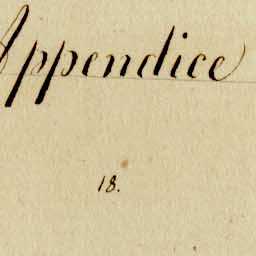 Appendice
18.